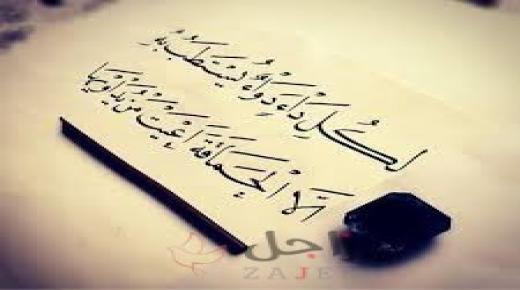 لِكُلِّ دَاءٍ دَوَاءٌ يُسْتَطَبُّ بِهِ
إلا الْحَمَاقَةَ أَعْيَتْ مَنْ يُدَاوِيهَا
زاجل
ZAJEL